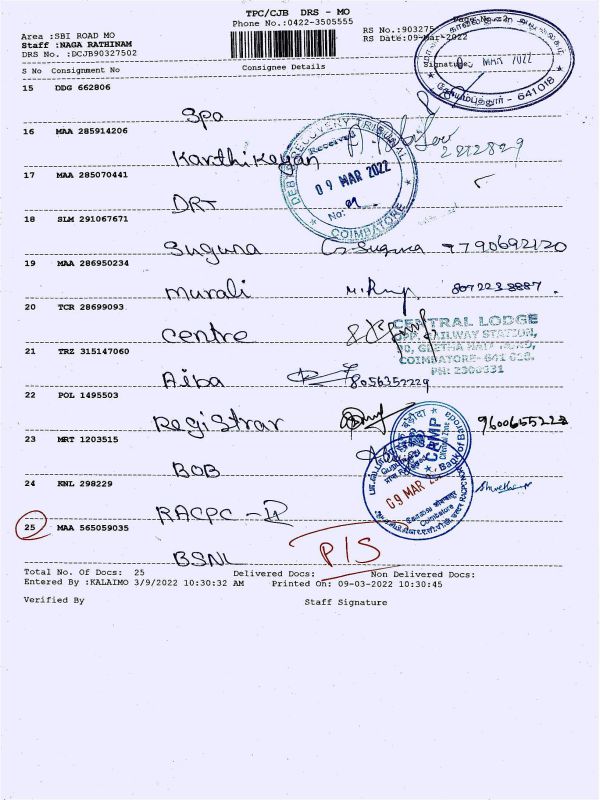 TPC/CJB DRS - MO
Phone No.:0422-3505555
Area :SBI ROAD MO
Staff :NAGA RATHINAM
DRS No. :DCJB90327502
RS No.:903275
RS Date:09-Mar-2022
S No Consignment No Consignee Details Signature
MAR 2022
கோயம்புத்தூர் - 641018
15 DDG 662806
Spa
16 MAA 285914206
Karthikeyan
2812829
DEBTS RECOVERY TRIBUNAL
Received
09 MAR 2022
No:
COIMBATORE
17 MAA 285070441
DRT
18 SLM 291067671
Suguna G. Suguna 9790692120
19 MAA 286950234
Murali 8072238887
20 TCR 28699093
Centre
CENTRAL LODGE
OPP. RAILWAY STATION,
COIMBATORE- 641 018.
21 TRZ 315147060
Aiba 8056352229
22 POL 1495503
Registrar
23 MRT 1203515
BOB
CRMP
Bank of Baroda
09 MAR
Coimbatore
24 KNL 298229
RACPC - II
25 MAA 565059035
BSNL P/S
Total No. Of Docs: 25 Delivered Docs: Non Delivered Docs:
Entered By :KALAIMO 3/9/2022 10:30:32 AM Printed On: 09-03-2022 10:30:45
Verified By Staff Signature